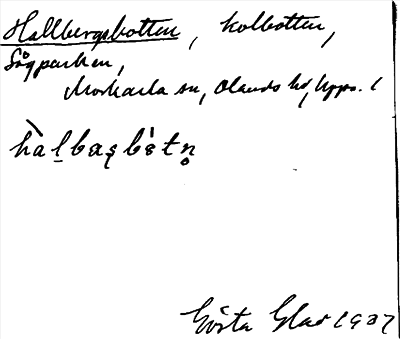 Hallbergsbotten, kolbotten,
Sågparken,
Morkarla sn, Olands hd, Upps. l
hàlbaṣbótn̥
Gösta Glad 1937